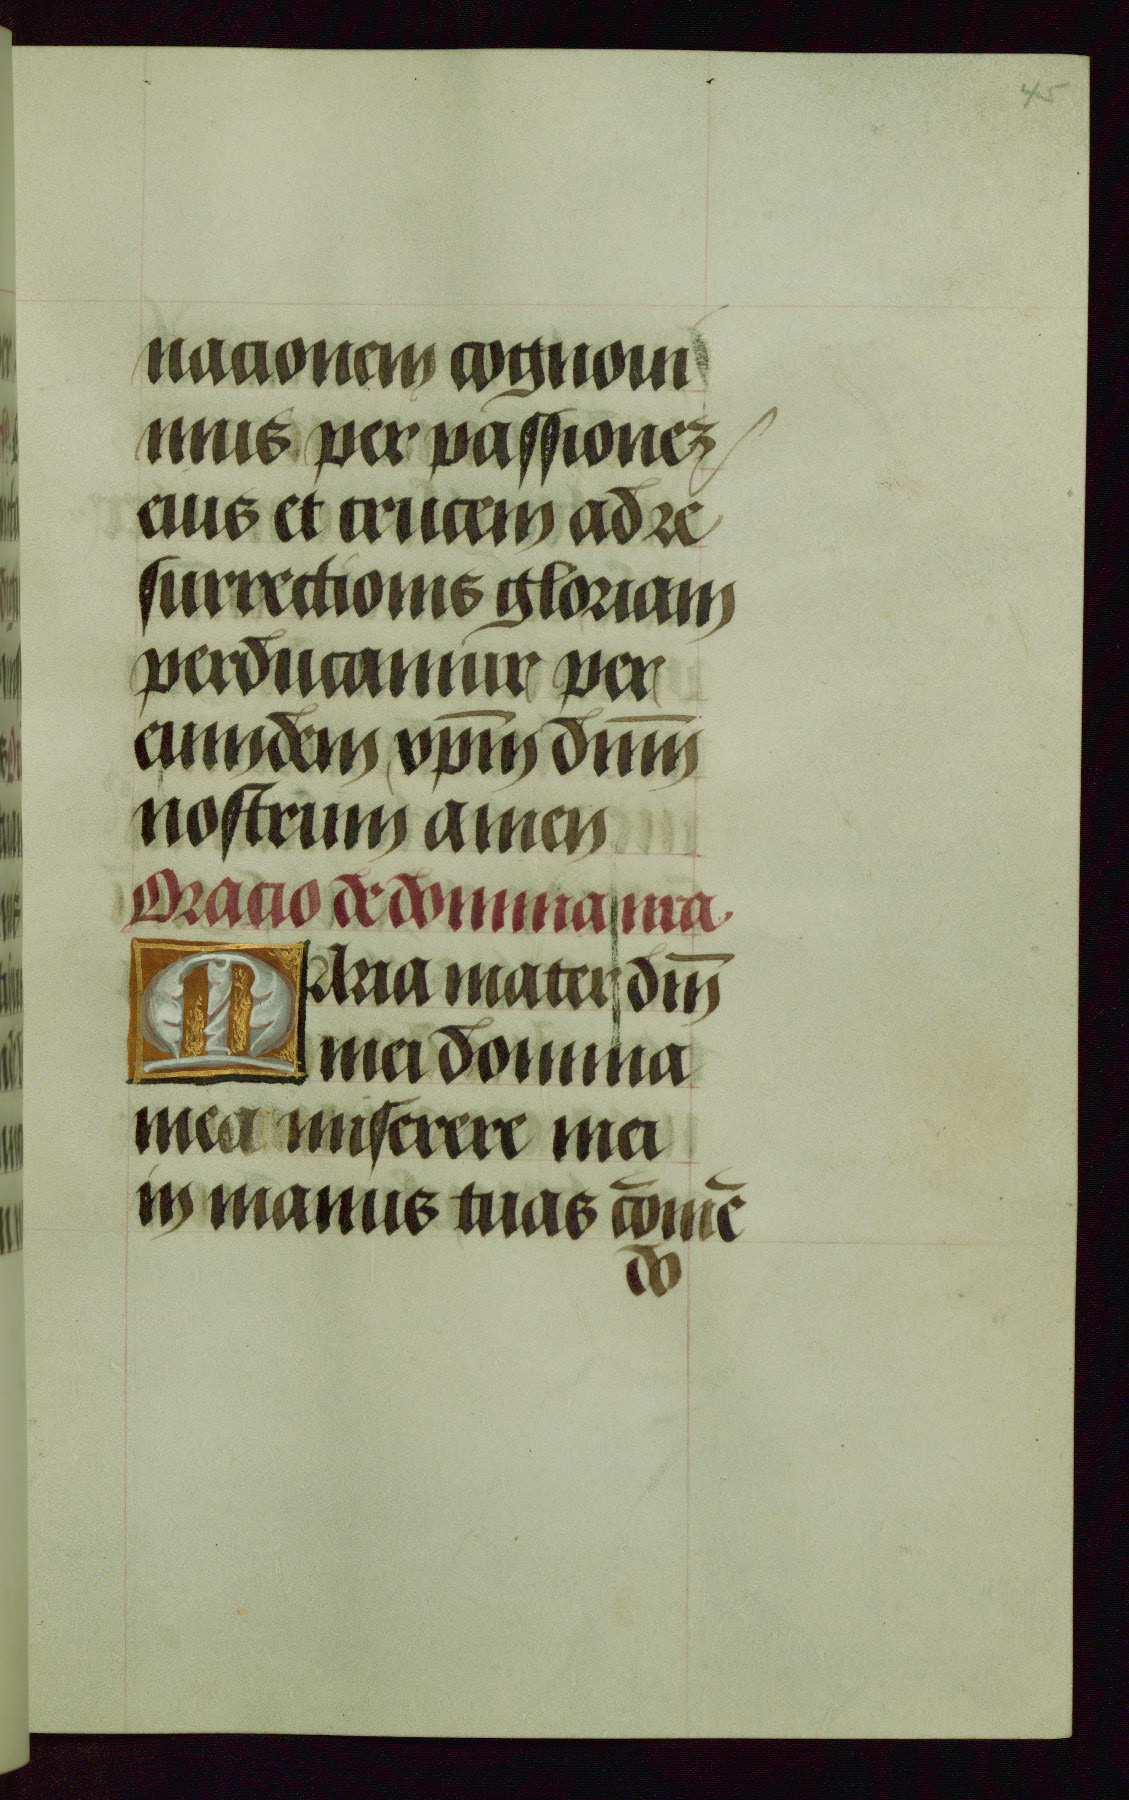 45
nacionem cognoui
mus per passionez
eius et crucem ad re
surrectionis gloriam
perducamur per
eumdem xp̄m dn̄m
nostrum amen
Oracio de domina nr̄a
MAria mater dn̄i
mei domina
mea miserere mei
in manus tuas cōmē
do